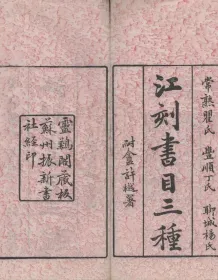 常熟瞿氏
豐順丁氏
聊城楊氏
江刻書目三種
耐盦許[?]署
靈鶼閣藏板
蘇州振新書
社經印